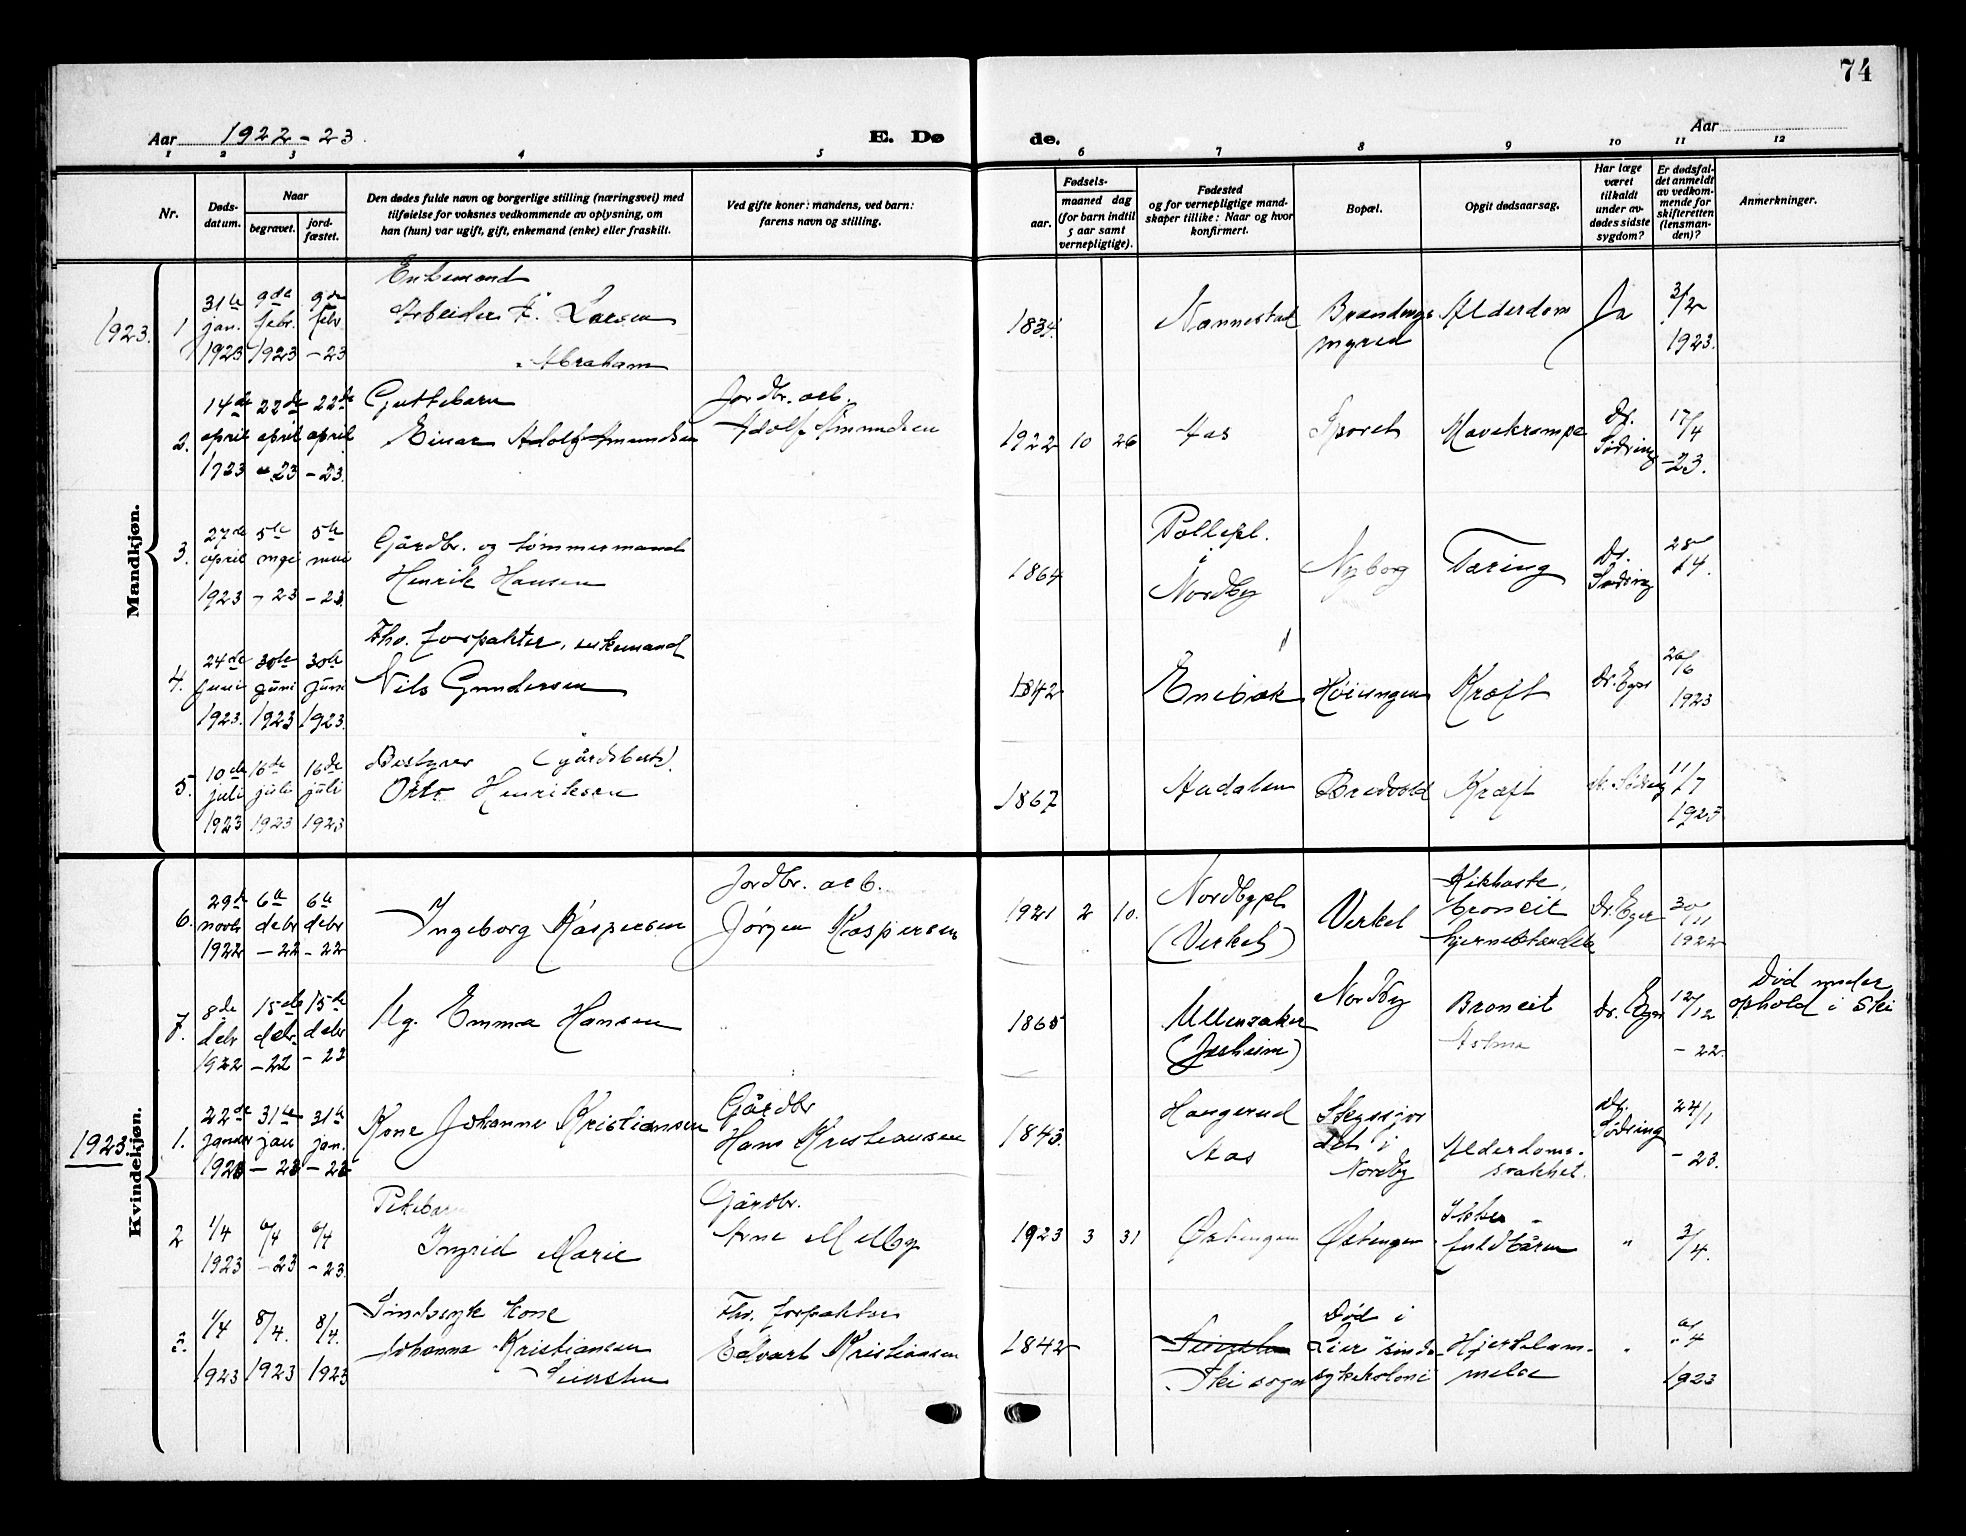 74
Aar 1922-23.
E. Dø
de.
Aar
1 2 3 4 5 6 7 8 9 10 11 12
Nr.
Døds-
datum.
Naar
begravet.
jord-
fæstet.
Den dødes fulde navn og borgerlige stilling (næringsvei) med
tilføielse for voksnes vedkommende av oplysning, om
han (hun) var ugift, gift, enkemand (enke) eller fraskilt.
Ved gifte koner: mandens, ved barn:
farens navn og stilling.
Fødsels-
aar.
maaned dag
(for barn indtil
5 aar samt
vernepligtige).
Fødested
og for vernepligtige mand-
skaper tillike: Naar og hvor
konfirmert.
Bopæl.
Opgit dødsaarsag.
Har læge
været
tilkaldt
under av-
dødes sidste
sygdom?
Er dødsfal-
det anmeldt
av vedkom-
mende for
skifteretten
(lensman-
den)?
Anmerkninger.
Mandkjøn.
1923.
1
31te jan. 1923
9de febr. 1923
9de febr -23
Enkemand
Arbeider F. Larsen
Abraham
1834
Nannestad
Brændings
myren
Alderdom
Ja
3/2
1923.
2.
14de april 1923
22de april -23
22de april -23.
Guttebarn
Einar Adolf Amundsen
Jordbr. arb.
Adolf Amundsen
1922 10 26
Aas
Sporet
Mavekrampe
Dr.
Södring
17/4
-23.
3.
27de april 1923
5te mai -23
5te mai -23.
Gårdbr. og tømmermand
Henrik Hansen
1864
Pollepl.
i
Nordby
Nyborg
Tæring
Dr.
Södring
28/4.
4.
24de juni 1923.
30te juni 1923
30te juni 1923.
Fhv. forpakter, enkemand
Nils Gundersen
1842
Enebak
Høiungen
Kræft
Dr. Eger
26/6
1923
5.
10de juli 1923
16de juli 1923
16de juli 1923
Bestyrer (gårdsbest).
Otto Henriksen
1867
Aadalen
Bredvold
Kræft
dr. Södring
11/7
1923
Kvindekjøn.
6.
29de novb 1922
6te debr -22
6te debr -22
Ingeborg Kaspersen
Jordbr. arb.
Jørgen Kaspersen
1921 2 10.
Nordbypl
(Verket)
Verket
Kikhoste,
bronkit
hjernebetændelse
Dr. Eger
30/11
1922
7.
8de debr 1922
15de debr. -22
15de debr -22
Ug. Emma Hansen
1865
Ullensaker
(Jesheim)
Nordby
Bronkit
Astma
Dr. Eger
12/12
-22.
Död under
ophold i Ski
1923.
1.
22de januar 1923
31te jan -23
31te jan. -23
Kone Johanne Kristiansen
Gårdbr
Hans Kristiansen
1843.
Haugerud
Aas
det i
Nordby
Alderdoms-
svakhet.
Dr.
Södring
24/1
-23.
2
1/4 1923
6/4 -23
6/4 -23.
Pikebarn
Ingrid Marie
Gårdbr.
Arne Melby
1923 3 31
Østengen
Østengen
Ikke
fuldbåren
"
3/4.
3.
1/4 1923
8/4. 1923
8/4. 1923
Sindssyk kone
Johanna Kristiansen
Seiersten
Fhv. forpakter
Edvart Kristiansen
1842
Seiersten
Ski sogn
Død i
Lier sinds-
sykekoloni
Hjertelam-
melse
"
4
1923